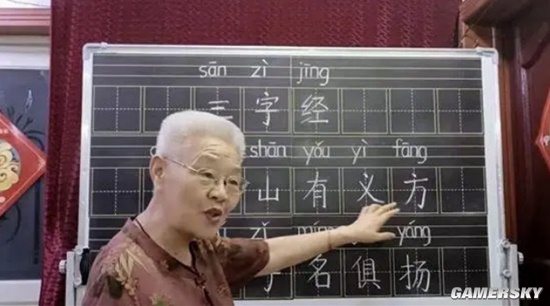 sān zì jīng
三字经
shān yǒu yì fāng
山有义方
zǐ yáng
子名俱扬
GAMERSKY